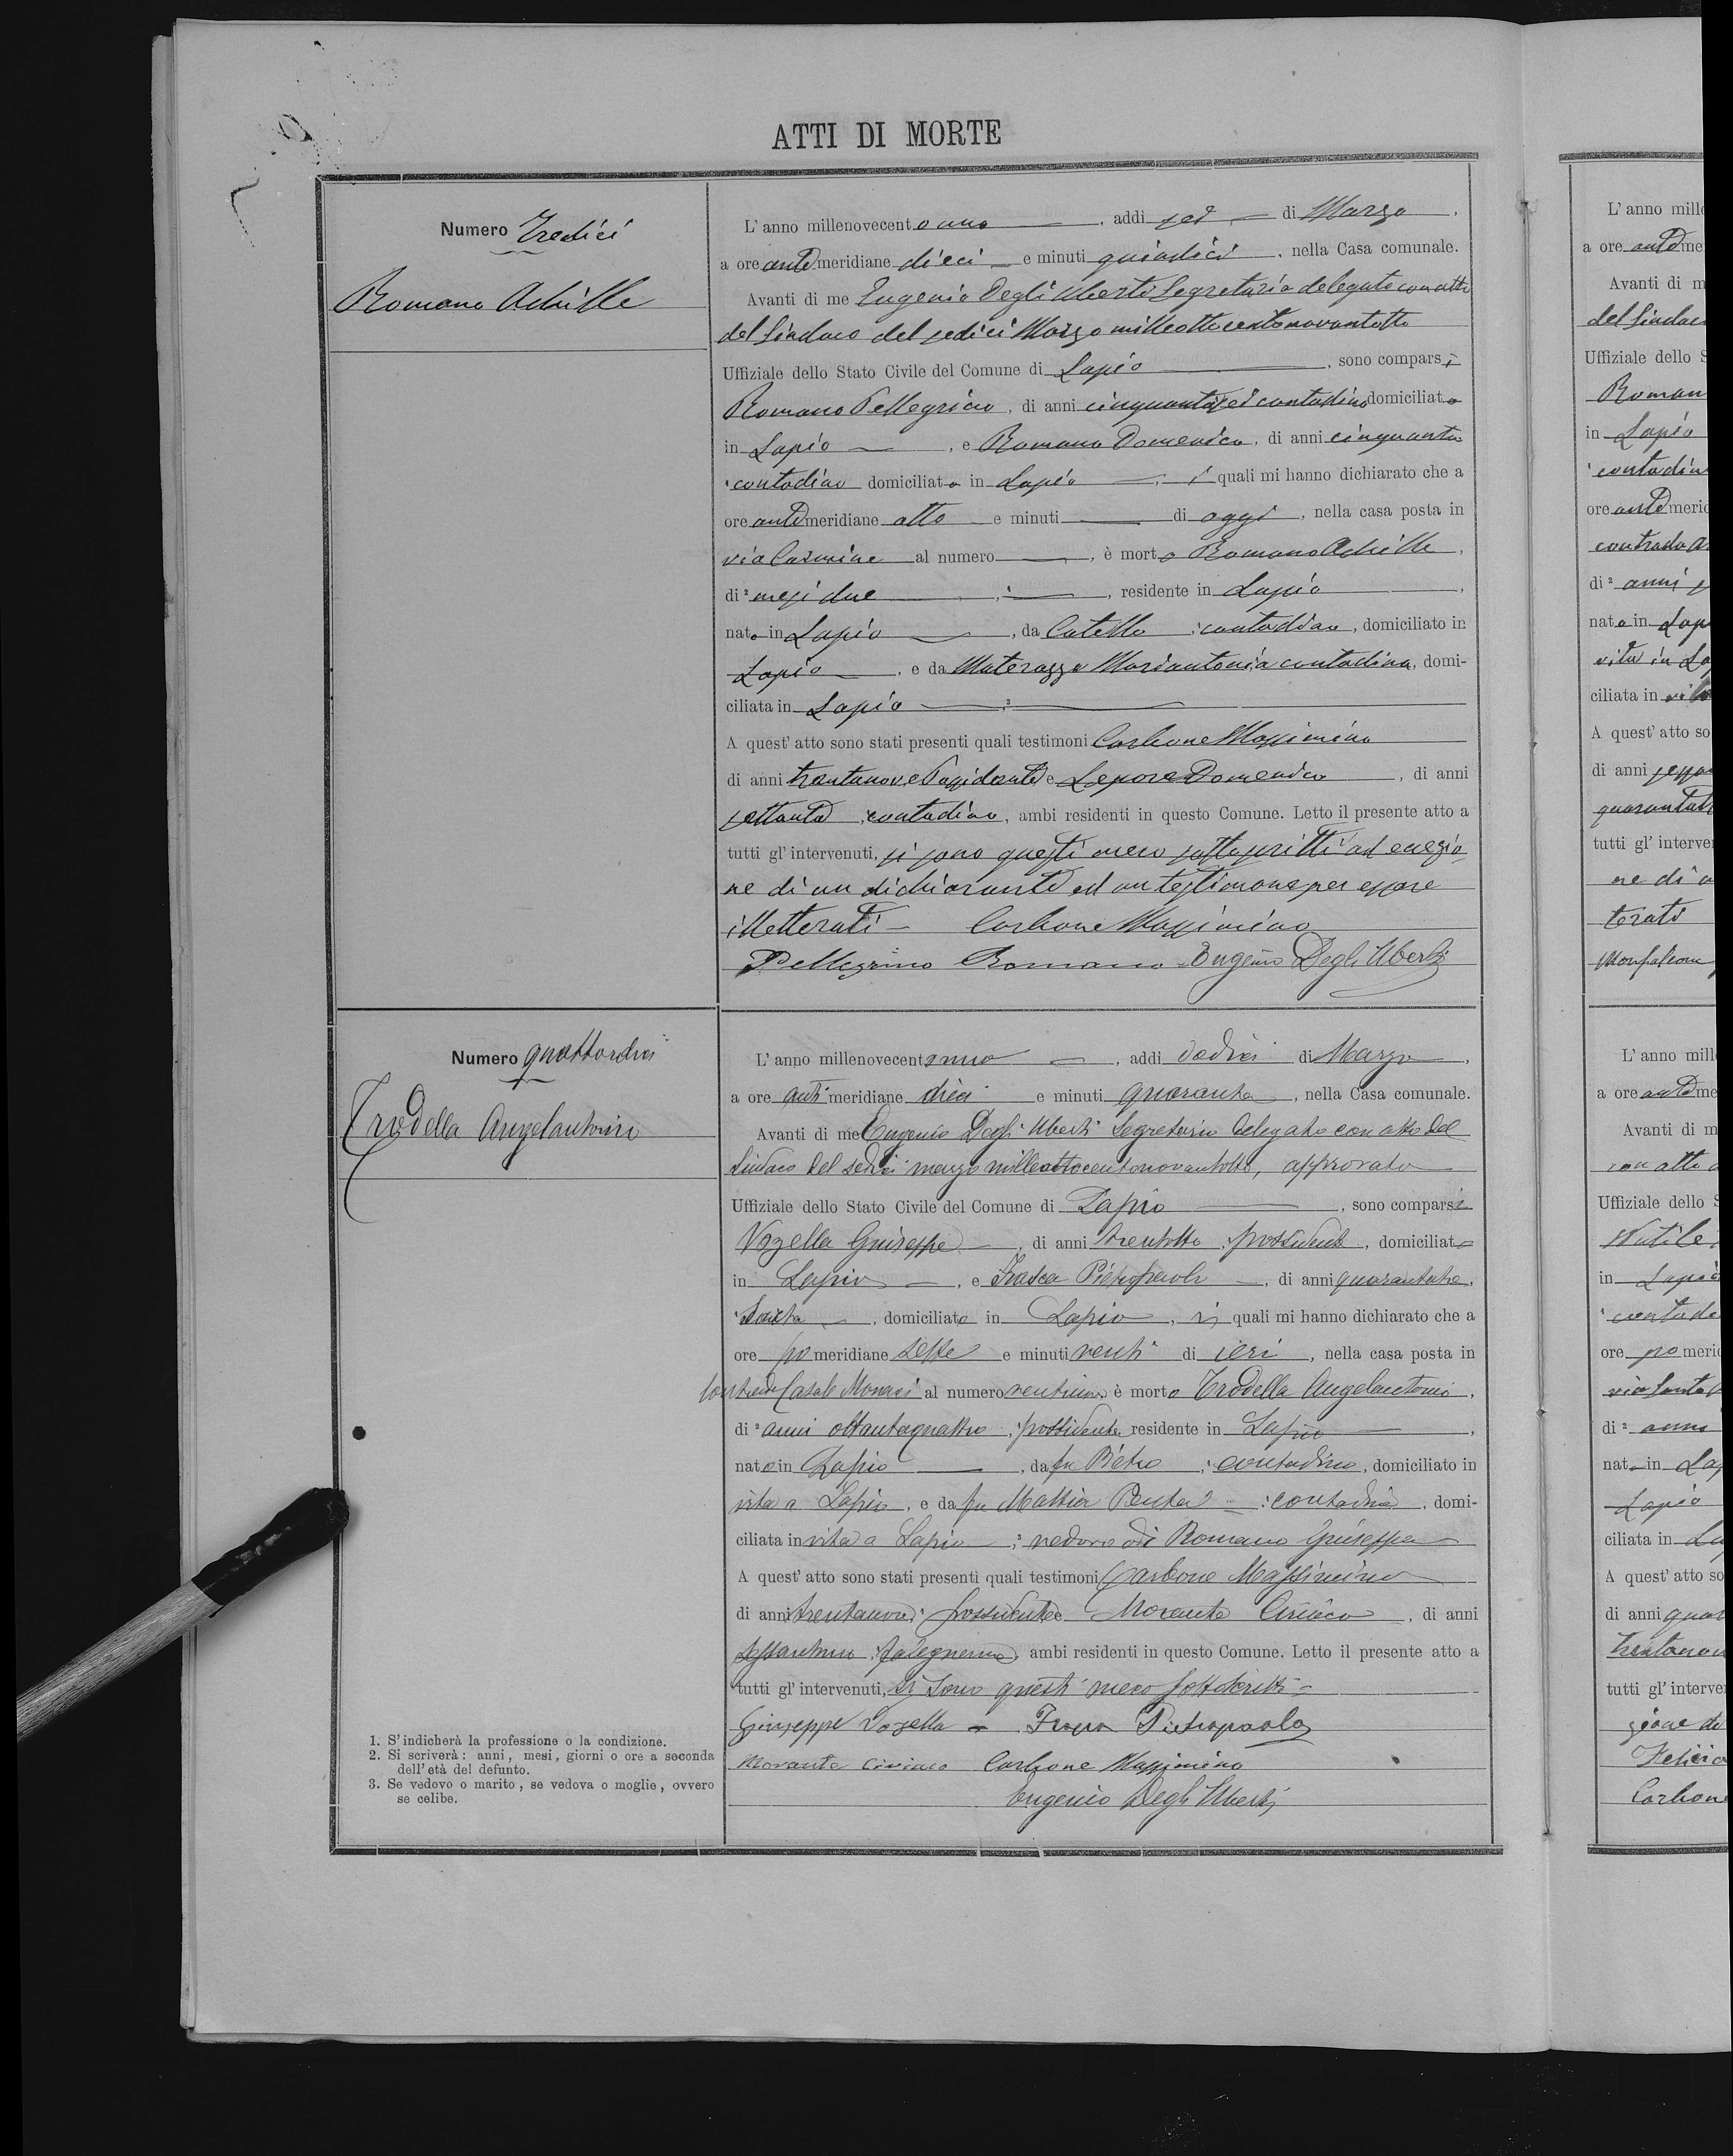 ATTI DI MORTE
Numero Tredici
Romano Achille
L'anno millenovecento uno, addi sei di Marzo,
a ore antemeridiane dieci e minuti quindici, nella Casa comunale.
Avanti di me Eugenio Degli Uberti Segretario delegato con atto
del Sindaco del sedici Marzo milleottocentonovantotto
Uffiziale dello Stato Civile del Comune di Lapio, sono comparsi
Romano Pellegrino, di anni cinquantasei contadino domiciliato
in Lapio, e Romano Domenico, di anni cinquanta
contadino domiciliato in Lapio, i quali mi hanno dichiarato che a
ore antemeridiane otto e minuti di oggi, nella casa posta in
via Carmine al numero, è morto Romano Achille,
di ² mesi due, residente in Lapio,
nato in Lapio, da Catello contadino, domiciliato in
Lapio, e da Materazzo Mariantonia contadina, domi-
ciliata in Lapio ³
A quest'atto sono stati presenti quali testimoni Carbone Massimino
di anni trentanove Possidente e Lepore Domenico, di anni
settanta, contadino, ambi residenti in questo Comune. Letto il presente atto a
tutti gl'intervenuti, si sono questi meco sottoscritti ad eccezio
ne di un dichiarante ed un testimone per essere
illetterati - Carbone Massimino
Pellegrino Romano - Eugenio Degli Uberti
Numero quattordici
Trodella Angelantonio
L'anno millenovecentouno, addi dodici di Marzo,
a ore antimeridiane dieci e minuti quaranta, nella Casa comunale.
Avanti di me Eugenio Degli Uberti Segretario delegato con atto del
Sindaco del sedici marzo milleottocentonovantotto, approvato
Uffiziale dello Stato Civile del Comune di Lapio, sono comparsi
Vozella Giuseppe, di anni trentotto, possidente, domiciliato
in Lapio, e Frasca Pietropaolo, di anni quarantatre,
domiciliato in Lapio, i quali mi hanno dichiarato che a
ore pomeridiane sette e minuti venti di ieri, nella casa posta in
Contrada Casale Monaci al numero è morto Trodella Angelantonio,
di ² anni ottantaquattro, possidente, residente in Lapio,
nato in Lapio, da fu Pietro, contadino, domiciliato in
vita a Lapio, e da fu Mattia Penta, contadina, domi-
ciliata in vita a Lapio ³ vedovo di Romano Giuseppa
A quest'atto sono stati presenti quali testimoni Carbone Massimino
di anni trentanove, possidente e Morante Ciriaco, di anni
sessantuno, falegname, ambi residenti in questo Comune. Letto il presente atto a
tutti gl'intervenuti, si sono questi meco sottoscritti -
Giuseppe Vozella - Frasca Pietropaolo
Morante Ciriaco Carbone Massimino
Eugenio Degli Uberti
1. S'indicherà la professione o la condizione.
2. Si scriverà: anni, mesi, giorni o ore a seconda
dell'età del defunto.
3. Se vedovo o marito, se vedova o moglie, ovvero
se celibe.
L'anno mille
a ore anteme
Avanti di m
del Sindac
Uffiziale dello S
Roman
in Lapio
contadin
ore antemeri
contrada
di ² anni
nato in Lap
vita in La
ciliata in
A quest'atto so
di anni
tutti gl'interve
ne di
terati
L'anno mill
a ore anteme
Avanti di m
con atto
Uffiziale dello S
in Lapio
contad
ore pomeri
via
di ² anni
nat in Lap
Lapio
ciliata in La
A quest'atto so
di anni
trentanov
tutti gl'interve
zione di
Carbone